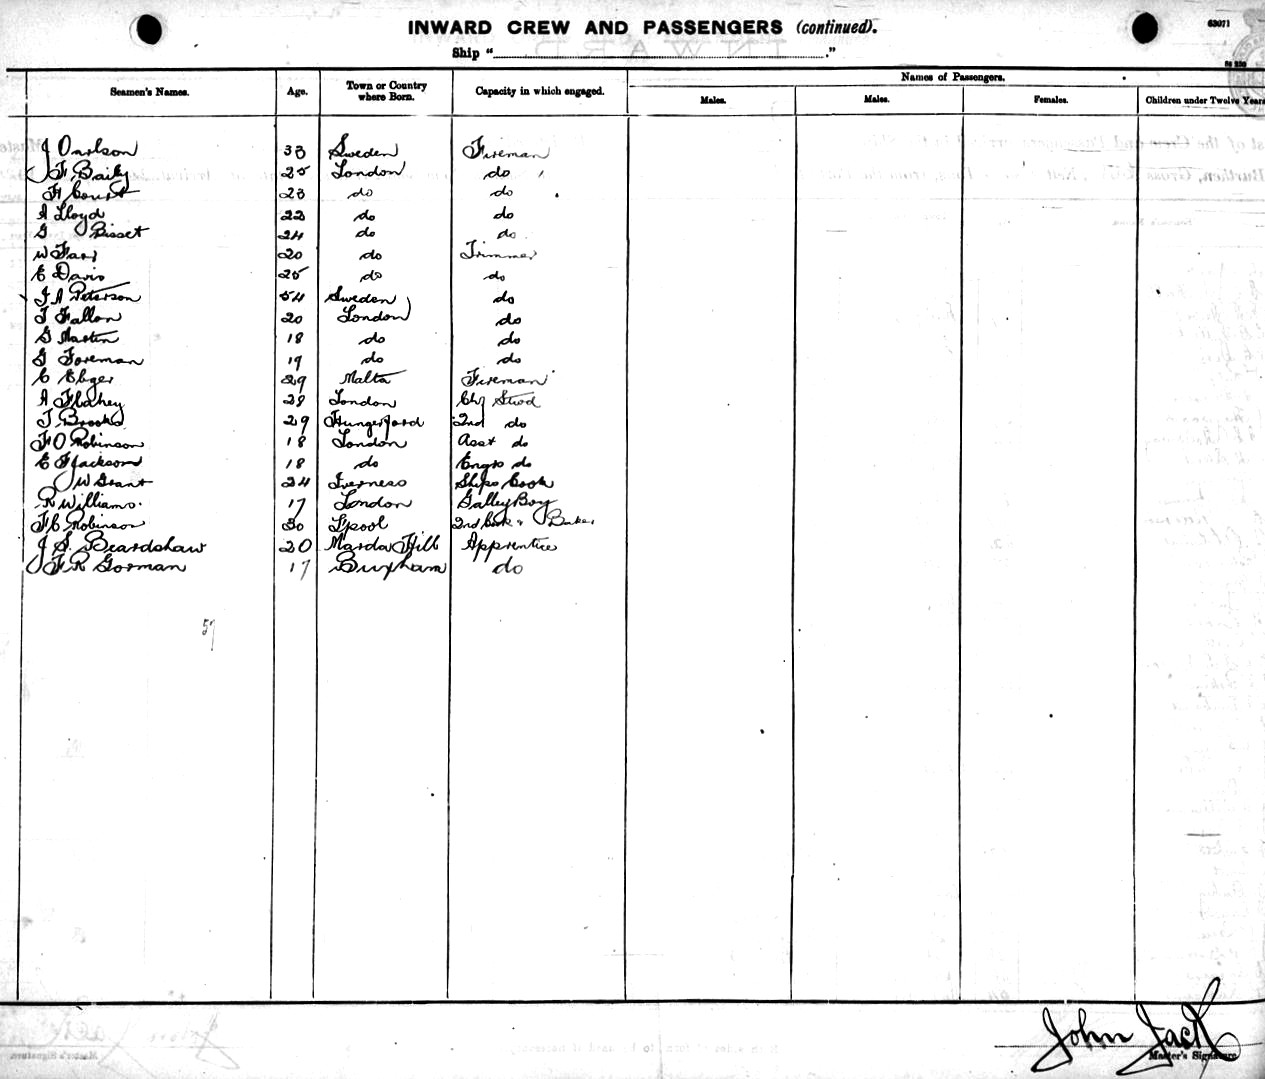 INWARD CREW AND PASSENGERS (continued).
63071
Ship " ."
Seamen's Names. Age. Town or Country where Born. Capacity in which engaged. Names of Passengers.
Males. Males. Females. Children under Twelve Years
J Carlson 33 Sweden Fireman
F Baily 25 London do
H Court 23 do do
A Lloyd 22 do do
G Bisset 24 do do
W Farr 20 do Trimmer
E Davis 25 do do
J A Peterson 54 Sweden do
J Fallon 20 London do
G Martin 18 do do
G Foreman 19 do do
C Ebger 29 Malta Fireman
A Flahey 28 London Chf Stwd
T Brooks 29 Hungerford 2nd do
F O Robinson 18 London Asst do
E F Jackson 18 do Engrs do
W Grant 24 Iverness Ships Cook
R Williams. 17 London Galley Boy
F C Robinson 30 L'pool 2nd Cook & Baker
J S. Beardshaw 20 Marda Hill Apprentice
F R Gorman 17 Brixham do
57
John Jack
Master's Signature